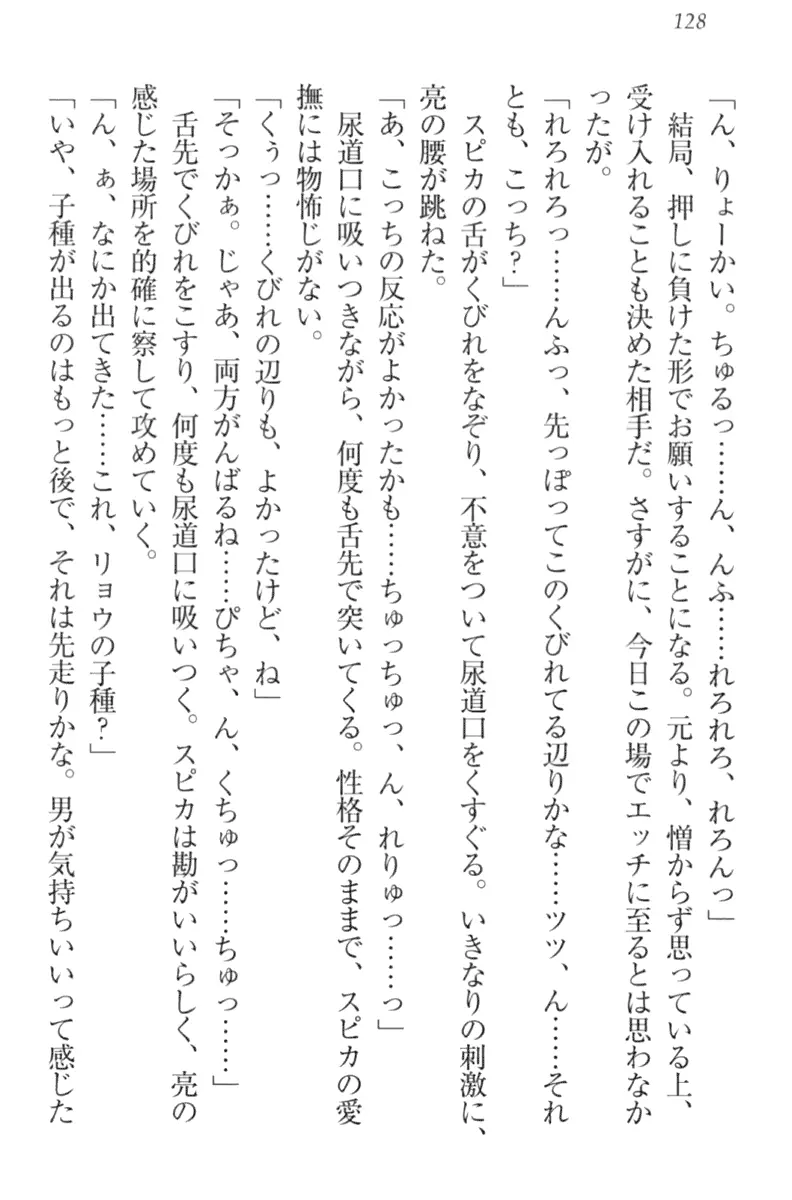 128
「ん、りょーかい。ちゅるっ……ん、んふ……れろれろ、れろんっ」
結局、押しに負けた形でお願いすることになる。元より、憎からず思っている上、
受け入れることも決めた相手だ。さすがに、今日この場でエッチに至るとは思わなか
ったが。
「れろれろっ……んふっ、先っぽってこのくびれてる辺りかな……ツツ、ん……それ
とも、こっち?」
スピカの舌がくびれをなぞり、不意をついて尿道口をくすぐる。いきなりの刺激に、
亮の腰が跳ねた。
「あ、こっちの反応がよかったかも……ちゅっちゅっ、ん、れりゅっ……っ」
尿道口に吸いつきながら、何度も舌先で突いてくる。性格そのままで、スピカの愛
撫には物怖じがない。
「くぅっ……くびれの辺りも、よかったけど、ね」
「そっかぁ。じゃあ、両方がんばるね……ぴちゃ、ん、くちゅっ……ちゅっ……」
舌先でくびれをこすり、何度も尿道口に吸いつく。スピカは勘がいいらしく、亮の
感じた場所を的確に察して攻めていく。
「ん、ぁ、なにか出てきた……これ、リョウの子種?」
「いや、子種が出るのはもっと後で、それは先走りかな。男が気持ちいいって感じた